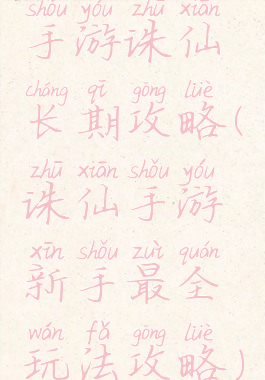 shǒu yóu zhū xiān
手游诛仙
cháng qī gōng lüè
长期攻略(
zhū xiān shǒu yóu
诛仙手游
xīn shǒu zuì quán
新手最全
wán fǎ gōng lüè
玩法攻略)